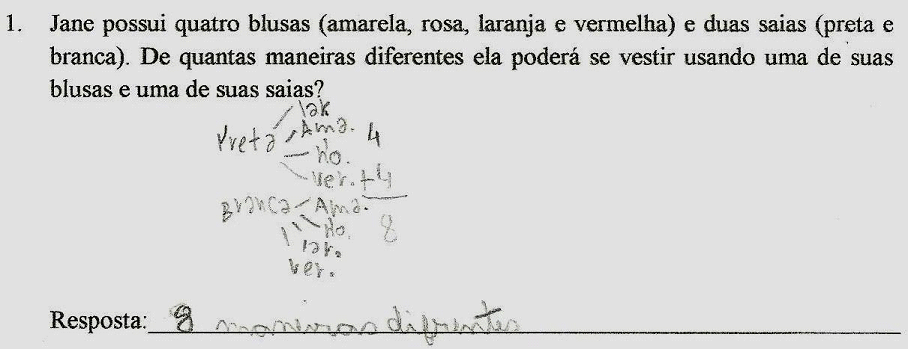 1. Jane possui quatro blusas (amarela, rosa, laranja e vermelha) e duas saias (preta e
branca). De quantas maneiras diferentes ela poderá se vestir usando uma de suas
blusas e uma de suas saias?
lar
Preta Ama. 4
Ro.
ver. +4
Branca Ama.
Ro. 8
lar.
ver.
Resposta: 8 maneiras difrentes